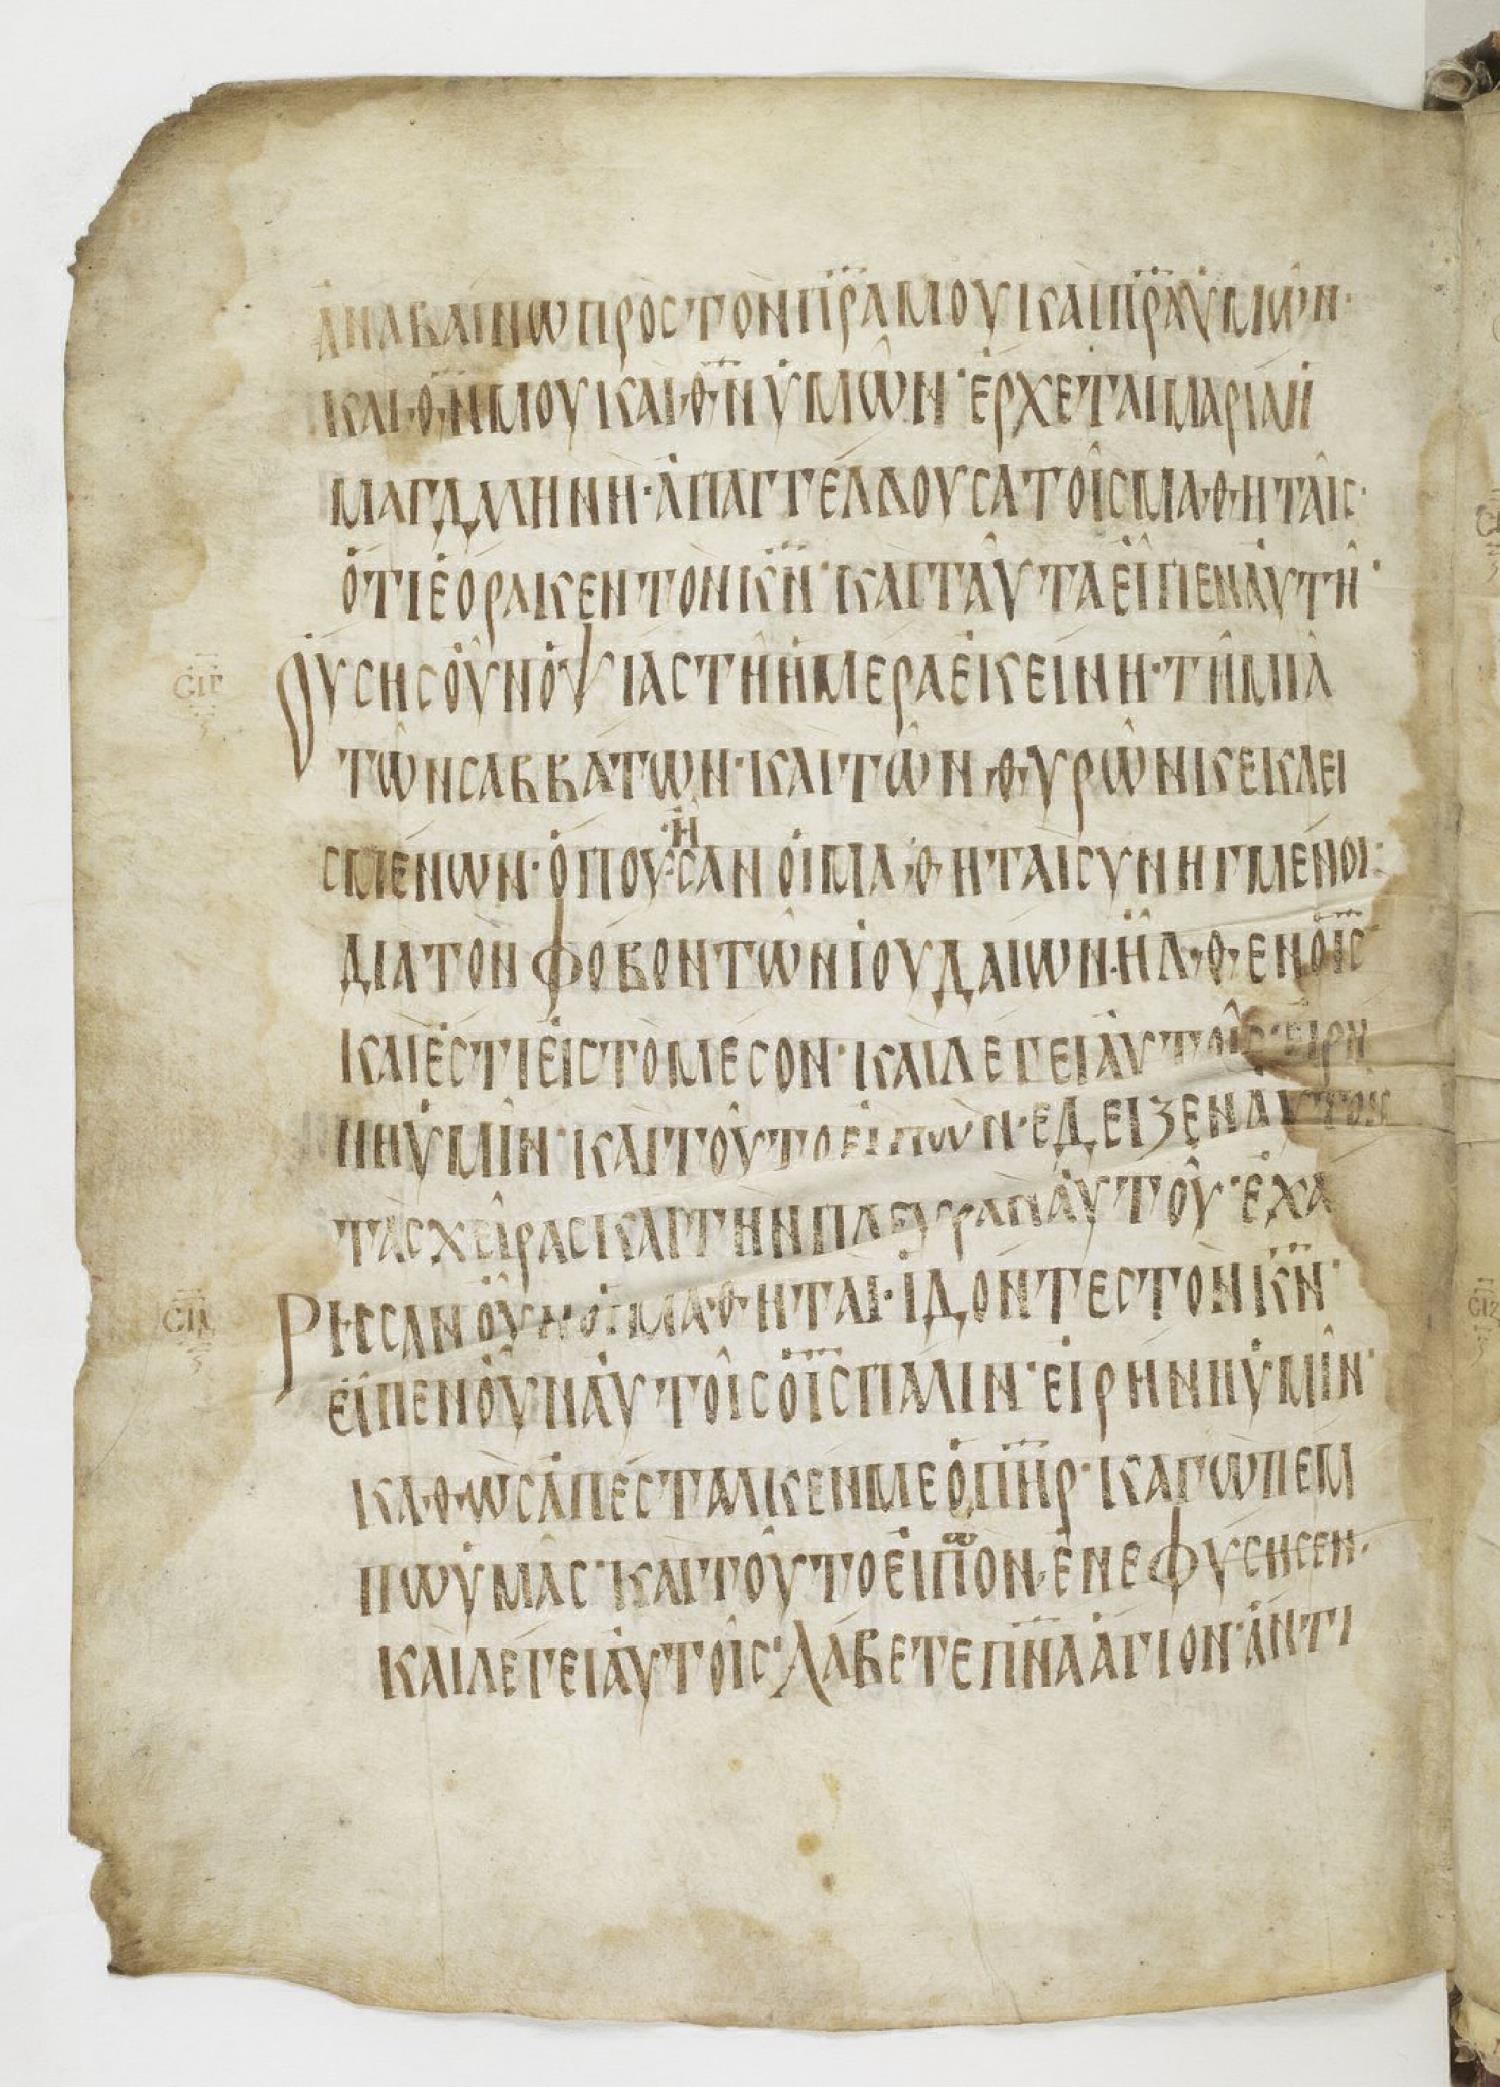 ἀναβαίνω πρὸς τὸν π̅ρ̅α̅ μου καὶ π̅ρ̅α̅ ὑμῶν·
καὶ θ̅ν̅ μου καὶ θ̅ν̅ ὑμῶν· ἔρχεται μαριὰμ ἡ
μαγδαληνὴ· ἀπαγγέλλουσα τοῖς μαθηταῖς·
ὅτι ἑόρακεν τὸν κ̅ν̅· καὶ ταῦτα εἶπεν αὐτῆ·
ϲ̅ι̅γ̅ Οὔσης οὖν ὀψίας τῆ ἡμέρα ἐκείνη· τῆ μιᾶ
τῶν σαββάτων· καὶ τῶν θυρῶν κεκλει
σμένων· ὅπου ἦσαν οἱ μαθηταὶ συνηγμένοι·
διὰ τὸν φόβον τῶν ἰουδαίων· ἦλθεν ὁ ι̅ς̅
καὶ ἔστι εἰς τὸ μέσον· καὶ λέγει αὐτοῖς· εἰρή
νη ὑμῖν· καὶ τοῦτο εἰπὼν· ἔδειξεν αὐτοῖς
τὰς χεῖρας καὶ τὴν πλευρὰν αὐτοῦ· ἐχά
ϲ̅ι̅δ̅ Ρησαν οὖν οἱ μαθηταὶ· ἰδόντες τὸν κ̅ν̅·
εἶπεν οὖν αὐτοῖς ὁ ι̅ς̅ πάλιν· εἰρήνη ὑμῖν·
καθὼς ἀπέσταλκέν με ὁ π̅η̅ρ̅· καγὼ πέμ
πω ὑμᾶς· καὶ τοῦτο εἰπὼν· ἐνεφύσησεν·
καὶ λέγει αὐτοῖς· Λάβετε π̅ν̅α̅ ἅγιον· ἄν τι